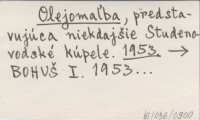 Olejomaľba, predsta-
vujúca niekdajšie Studeno-
vodské kúpele. 1953. →
BOHÚŠ I. 1953...